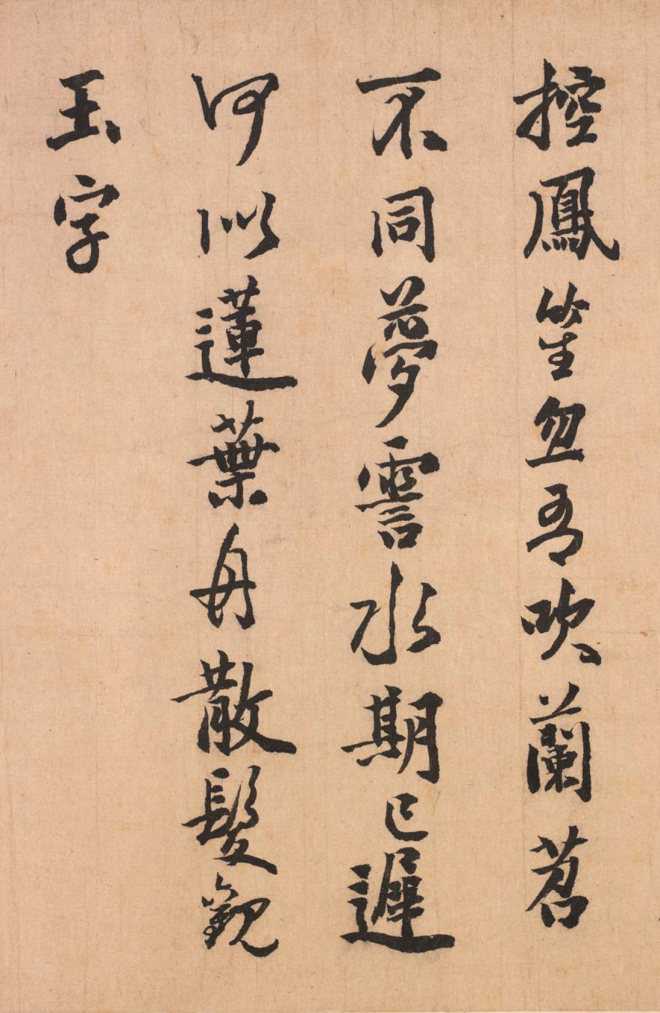 控鳳笙忽吹蘭苕
不同夢霅水期已遲
何似蓮葉舟散髮觀
玉字